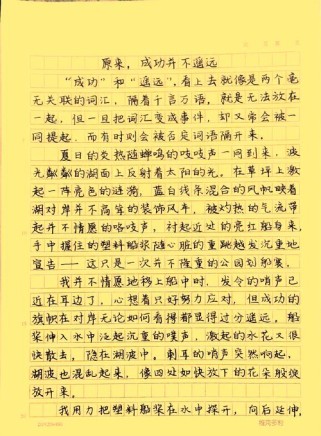 原来，成功并不遥远
“成功”和“遥远”，看上去就像是两个毫
无关联的词汇，隔着千言万语，就是无法放在
一起，但一旦把词汇变成事件，却又常会被一
同提起，而有时则会被否定词语隔开来。
夏日的炎热随蝉鸣的吱吱声一同到来，波
光粼粼的湖面上反射着太阳的光。在草坪上激
起一阵亮色的涟漪，蓝白线条混合的风帆映着
湖对岸并不高笨的装饰风车，被灼热的气流带
起并不情愿的咯吱声，衬起近处的亮红船身来，
手中握住的塑料船桨随心脏的重跳越发沉重地
宣告——这只是一次并不隆重的公园划船赛。
我并不情愿地移上船中时，发令的哨声已
近在耳边了，心想着只好努力应对，但成功的
旗帜在对岸无论如何看得都显得过分遥远。船
桨伸入水中泛起沉重的噗声，激起的水花又很
快散去，隐在湖波中。刺耳的哨声突然响起，
湖波也混乱起来，像四处如快放下的花朵般快
放开来。
我用力把塑料船桨在水中撑开，向后延伸，